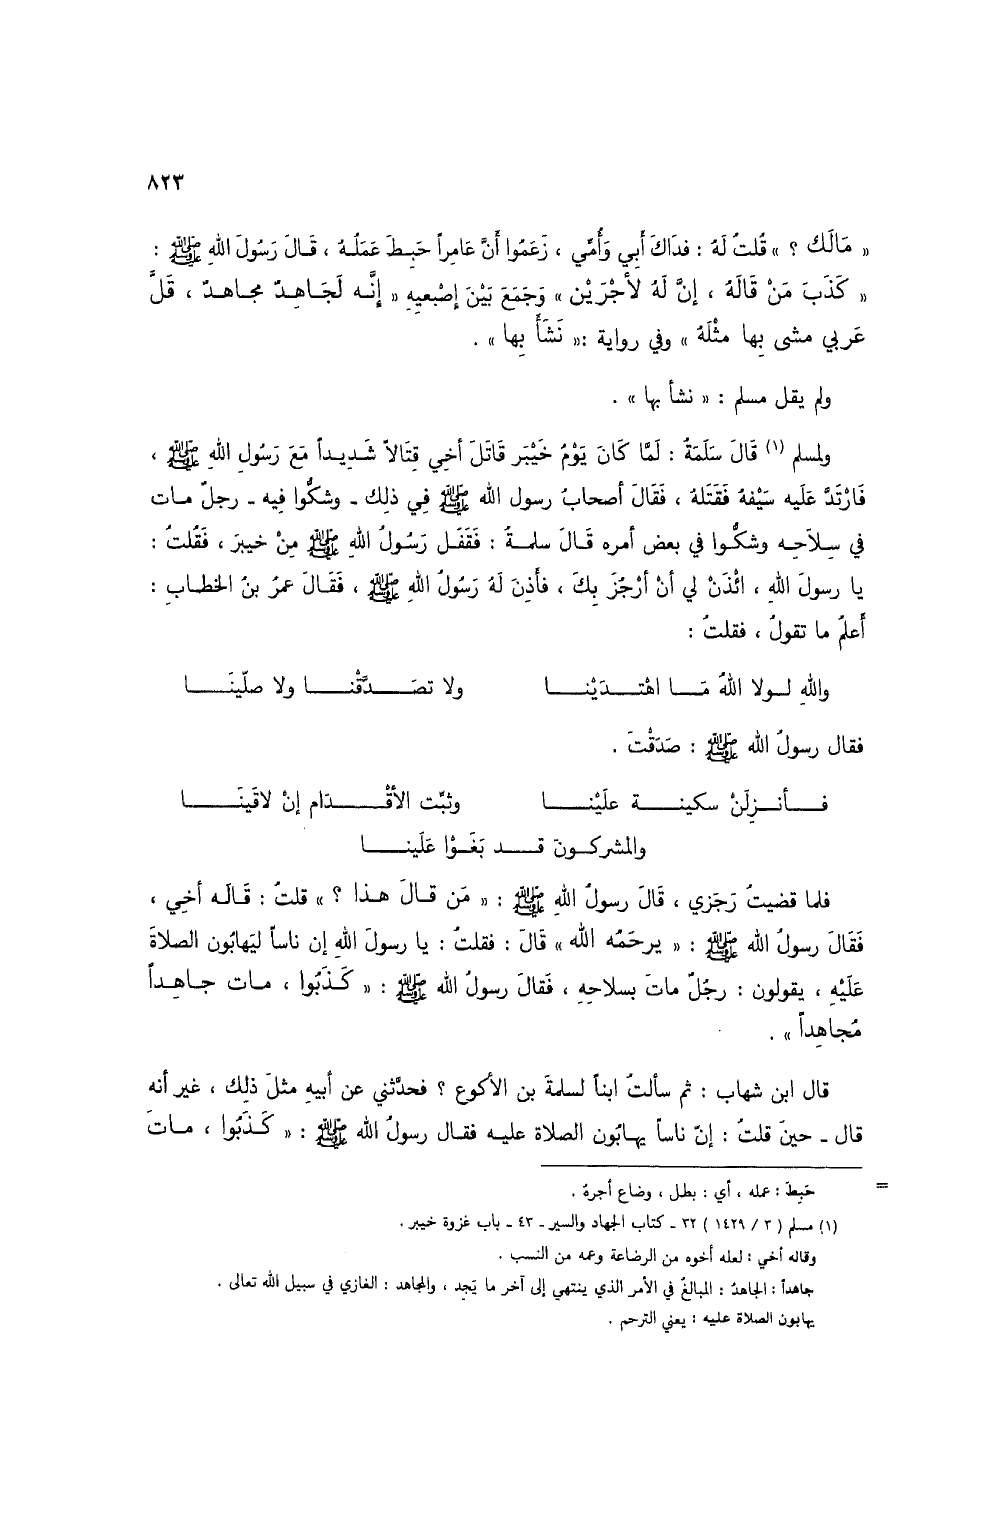 ٨٢٣
« مَالَكَ ؟ » قُلتُ لَهُ : فدَاكَ أَبِي وَأُمِّي ، زَعَمُوا أَنَّ عَامِراً حَبِطَ عَمَلُهُ ، قَالَ رَسُولَ اللهِ ﷺ :
« كَذَبَ مَنْ قَالَهُ ، إنَّ لَهُ لأجْرَيْن » وَجَمَعَ بَيْنَ إصْبعيهِ « إنَّه لَجَاهِدٌ مجاهدٌ ، قَلَّ
عَربي مشى بِها مثْلَهُ » وفي رواية :« نَشَأَ بِها » .
ولم يقل مسلم : « نشأ بها » .
ولمسلم (١) قَالَ سَلَمَةُ : لَمَّا كَانَ يَوْمُ خَيْبَر قَاتَلَ أخي قِتَالاً شَدِيداً مَعَ رَسُولِ اللهِ ﷺ ،
فَارْتَدَّ عَلَيه سَيْفهُ فَقَتَلهُ ، فَقَالَ أصحابُ رسول الله ﷺ فِي ذلِك ـ وشكُّوا فِيه ـ رجلٌ مات
في سِلاَحِه وشكُّوا في بعض أمره قَالَ سلمةُ : فَقَفَل رَسُولُ اللهِ ﷺ مِنْ خيبرَ ، فَقُلتُ :
يا رسولَ اللهِ ، ائْذَنْ لي أنْ أرْجُزَ بِكَ ، فأذِنَ لَهُ رَسُولُ اللهِ ﷺ ، فَقَالَ عمرُ بنُ الخطاب :
أَعلمُ ما تقولُ ، فقلتُ :
واللهِ لولا اللهُ مَا اهْتدَيْنا ولا تصَدَّقْنا ولا صلّينَا
فقال رسولُ الله ﷺ : صَدَقْتَ .
فأنزِلَنْ سكينة علَيْنا وثبِّت الأقْدَام إنْ لاقَينَا
والمشركونَ قد بَغَوْا عَلَينا
فلما قضيتُ رَجَزي ، قَالَ رسولُ اللهِ ﷺ : « مَن قالَ هذا ؟ » قلتُ : قَالَه أخِي ،
فَقَالَ رسولُ الله ﷺ : « يرحَمُه الله » قَالَ : فقلتُ : يا رسولَ اللهِ إن ناساً ليَهابُون الصلاةَ
عَلَيْهِ ، يقولون : رجُلٌ ماتَ بسلاحِهِ ، فَقالَ رسولُ الله ﷺ : « كَذَبُوا ، مات جاهِداً
مُجاهِداً » .
قال ابن شهاب : ثم سألتُ ابناً لسلمةَ بن الأكوع ؟ فحدَّثني عن أبيهِ مثلَ ذلِك ، غير أنه
قال ـ حينَ قلتُ : إنّ ناساً يهابُون الصلاة عليه فقال رسولُ الله ﷺ : « كَذَبُوا ، ماتَ
= حَبِطَ : عمله ، أي : بطل ، وضاع أجرهُ .
(١) مسلم ( ٣ / ١٤٢٩ ) ٣٢ ـ كتاب الجهاد والسير ـ ٤٣ ـ باب غزوة خيبر .
وقاله أخي : لعله أخوه من الرضاعة وعمه من النسب .
جاهداً : الجاهدُ : المبالغُ في الأمر الذي ينتهي إلى آخر ما يَجد ، والمجاهد : الغازي في سبيل الله تعالى .
يهابون الصلاة عليه : يعني الترحم .